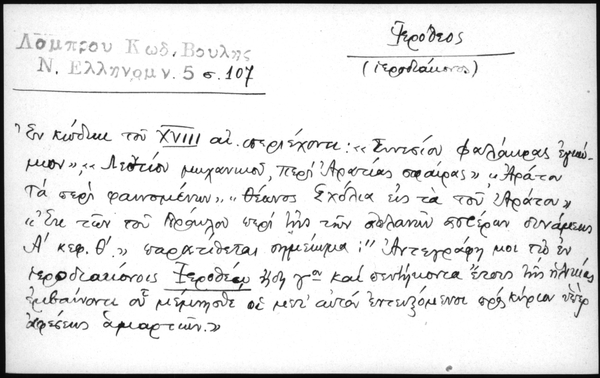 Λάμπρου Κωδ. Βουλής
Ν. Ελληνομν. 5 σ. 107
Ἱερόθεος
(ἱεροδιάκονος)
Ἐν κώδικι τοῦ XVIII αἰ. περιέχοντι: «Συνεσίου φαλάκρας ἐγκώ-
μιον», «Λεοντίου μηχανικοῦ, περὶ Ἀρατείας σφαίρας» «Ἀράτου
τὰ περὶ φαινομένων» «Θέωνος Σχόλια εἰς τὰ τοῦ Ἀράτου»
«Ἐκ τῶν τοῦ Πρόκλου περὶ τῆς τῶν πλανῶν ἀστέρων δυνάμεως
Α' κεφ. θ'.» παρατίθεται σημείωμα: "Ἀντεγράφη μοι τῷ ἐν
ἱεροδιακόνοις Ἱεροθέῳ ἤδη γον καὶ πεντήκοντα ἔτος τῆς ἡλικίας
ἐμβαίνοντι οὗ μέμνησθε οἱ μετ' αὐτὸν ἐντευξόμενοι πρὸς κύριον ὑπὲρ
ἀφέσεως ἁμαρτιῶν.»